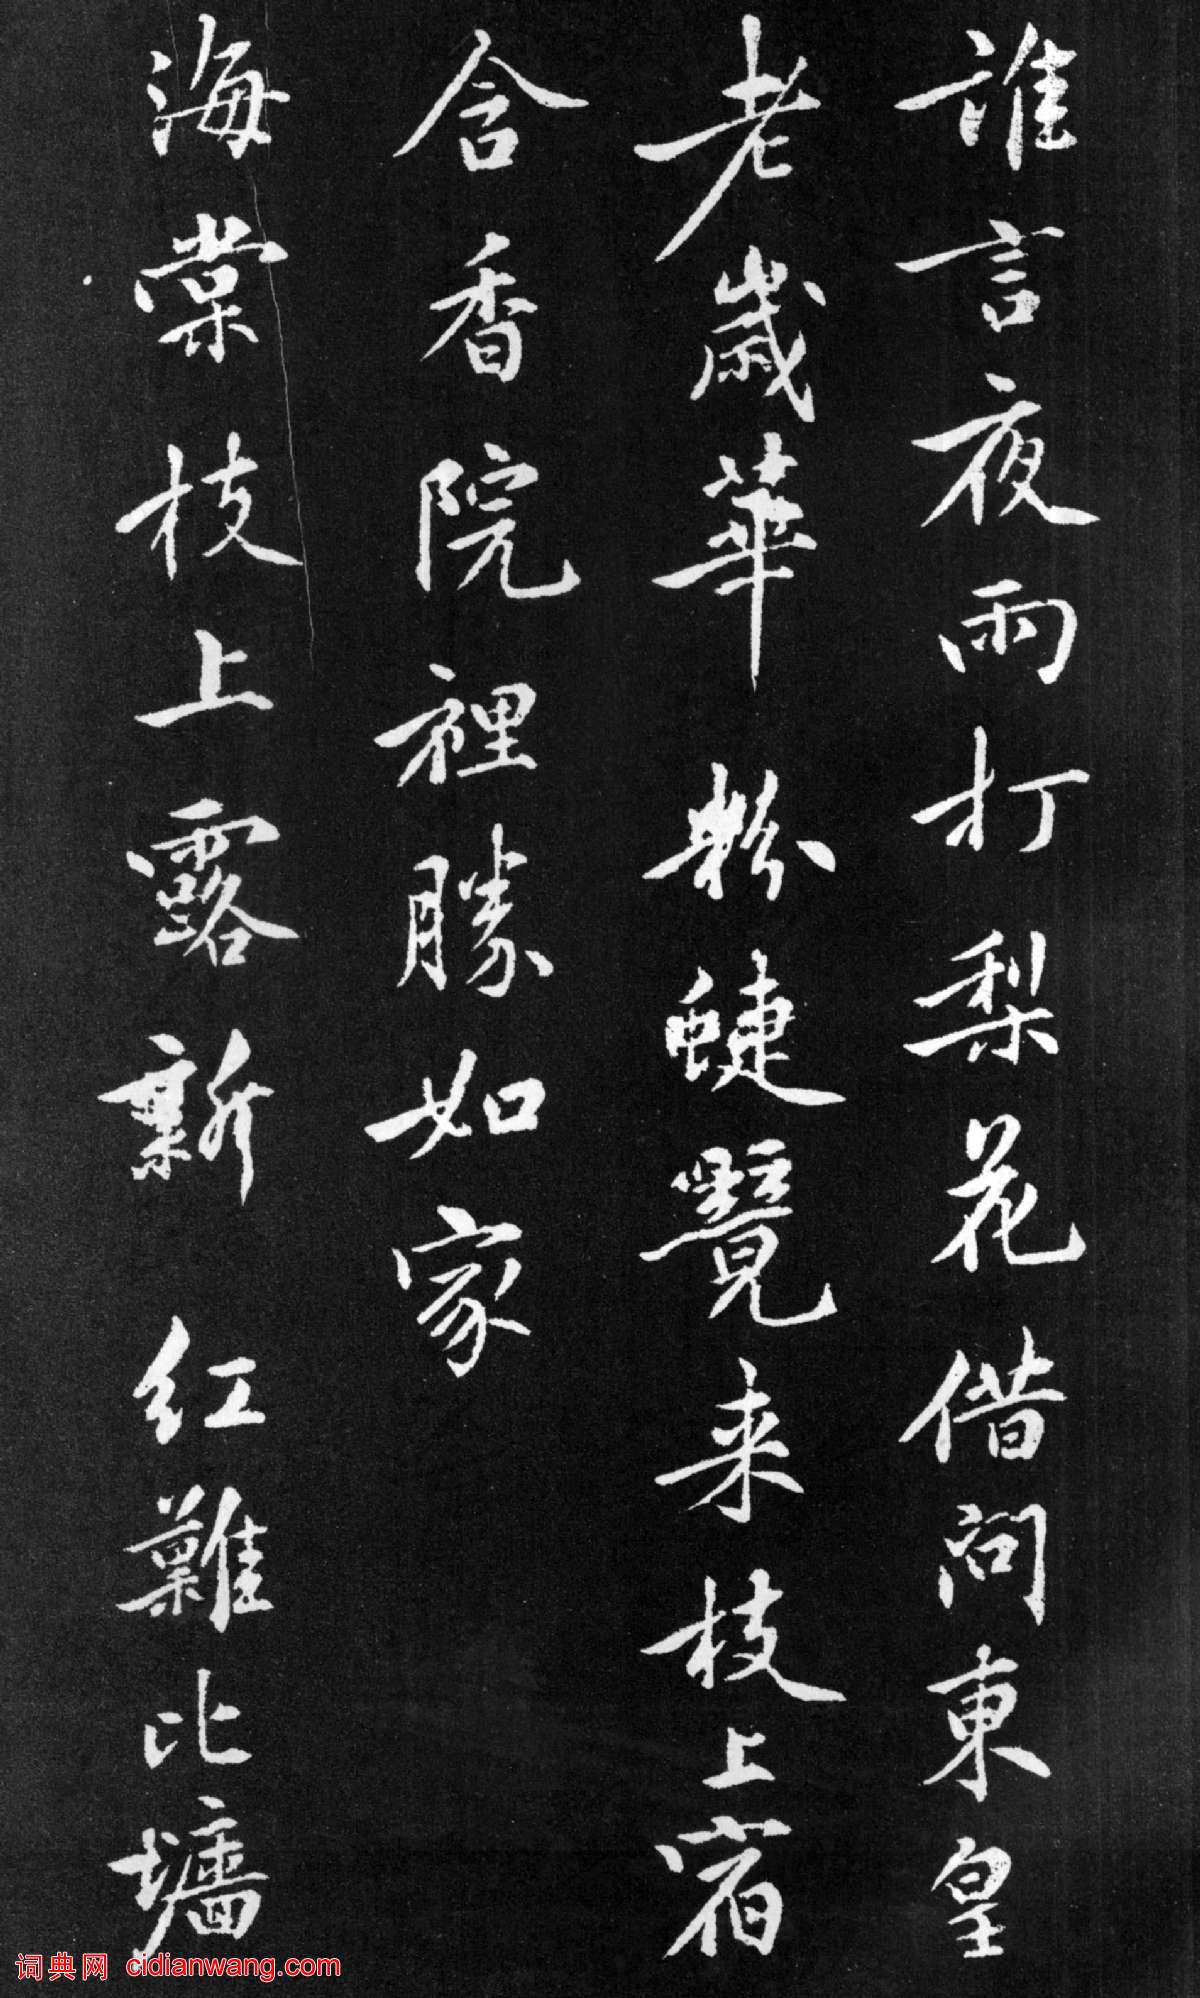 誰言夜雨打梨花借問東皇
老歲華粉蜨覺来枝上宿
含香院裡勝如家
海棠枝上露新红難比墻
词典网 cidianwang.com